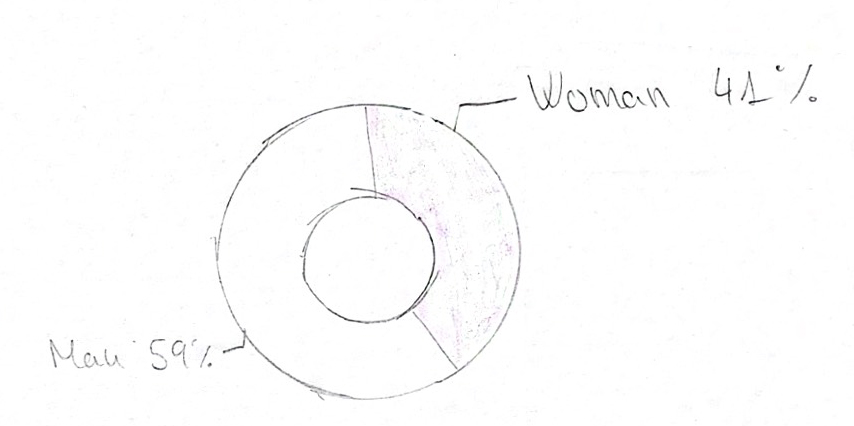 Woman 41%
Man 59%